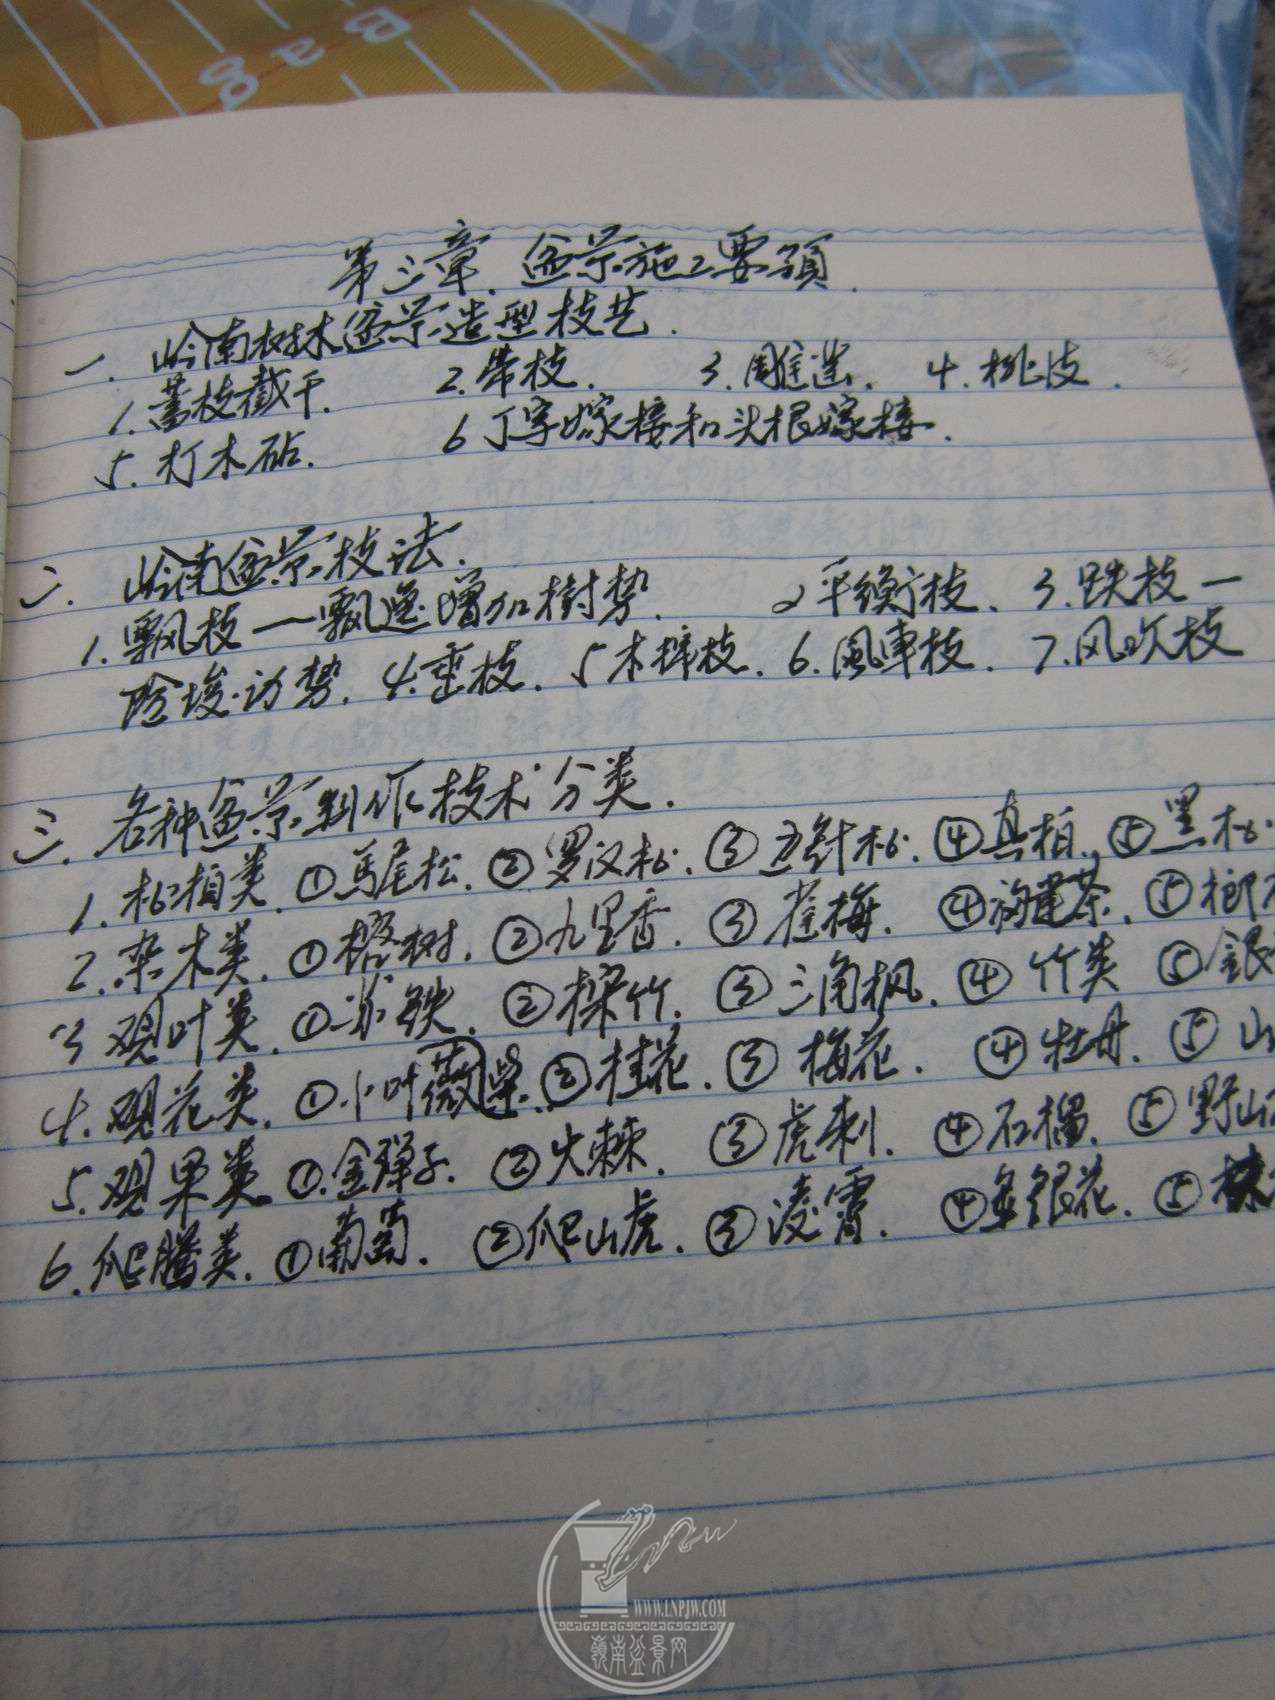 Bag
第三章. 盆景施工要领.
一. 岭南树木盆景造型技艺.
1. 蓄枝截干. 2. 带枝. 3. 雕造. 4. 挑皮.
5. 打木砧. 6 丁字嫁接和头根嫁接.
二. 岭南盆景技法.
1. 飘枝—飘逸增加樹势. 2 平衡枝. 3. 跌枝—
险峻.动势. 4. 垂枝. 5 木梓枝. 6. 風車枝. 7. 风吹枝
三. 各种盆景制作技术分类.
1. 松柏类. ①馬尾松. ②罗汉松. ③五针松. ④真柏. ⑤黑松
2. 杂木类. ①榕树. ②九里香. ③雀梅. ④福建茶. ⑤榔
3 观叶类. ①苏铁. ②棕竹. ③三角枫. ④竹类 ⑤銀
4. 观花类. ①小叶薇紫. ②桂花. ③梅花. ④牡丹. ⑤山
5. 观果类 ①.金弹子. ②火棘. ③虎刺. ④石榴. ⑤野山
6. 爬腾类. ①葡萄. ②爬山虎. ③凌霄. ④金银花. ⑤
WWW.LNPJW.COM
嶺南盆景网